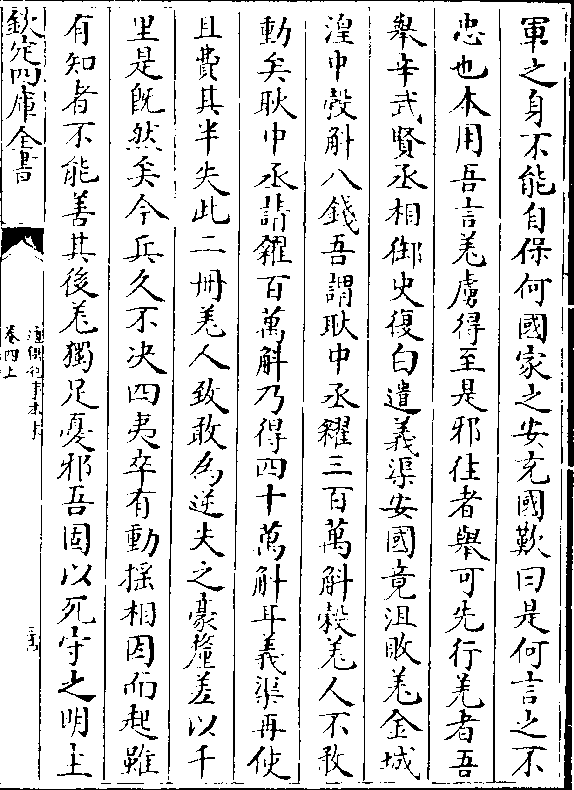 軍之身不能自保何國家之安充國歎曰是何言之不
忠也本用吾言羌虜得至是邪往者舉可先行羌者吾
舉辛武賢丞相御史復白遣義渠安國竟沮敗羌金城
湟中穀斛八錢吾謂耿中丞糴三百萬斛穀羌人不敢
動矣耿中丞請糴百萬斛乃得四十萬斛耳義渠再使
且費其半失此二冊羌人致敢為逆失之豪釐差以千
里是旣然矣今兵久不決四夷卒有動揺相因而起雖
有知者不能善其後羌獨足憂邪吾固以死守之明主
欽定四庫全書
卷四上